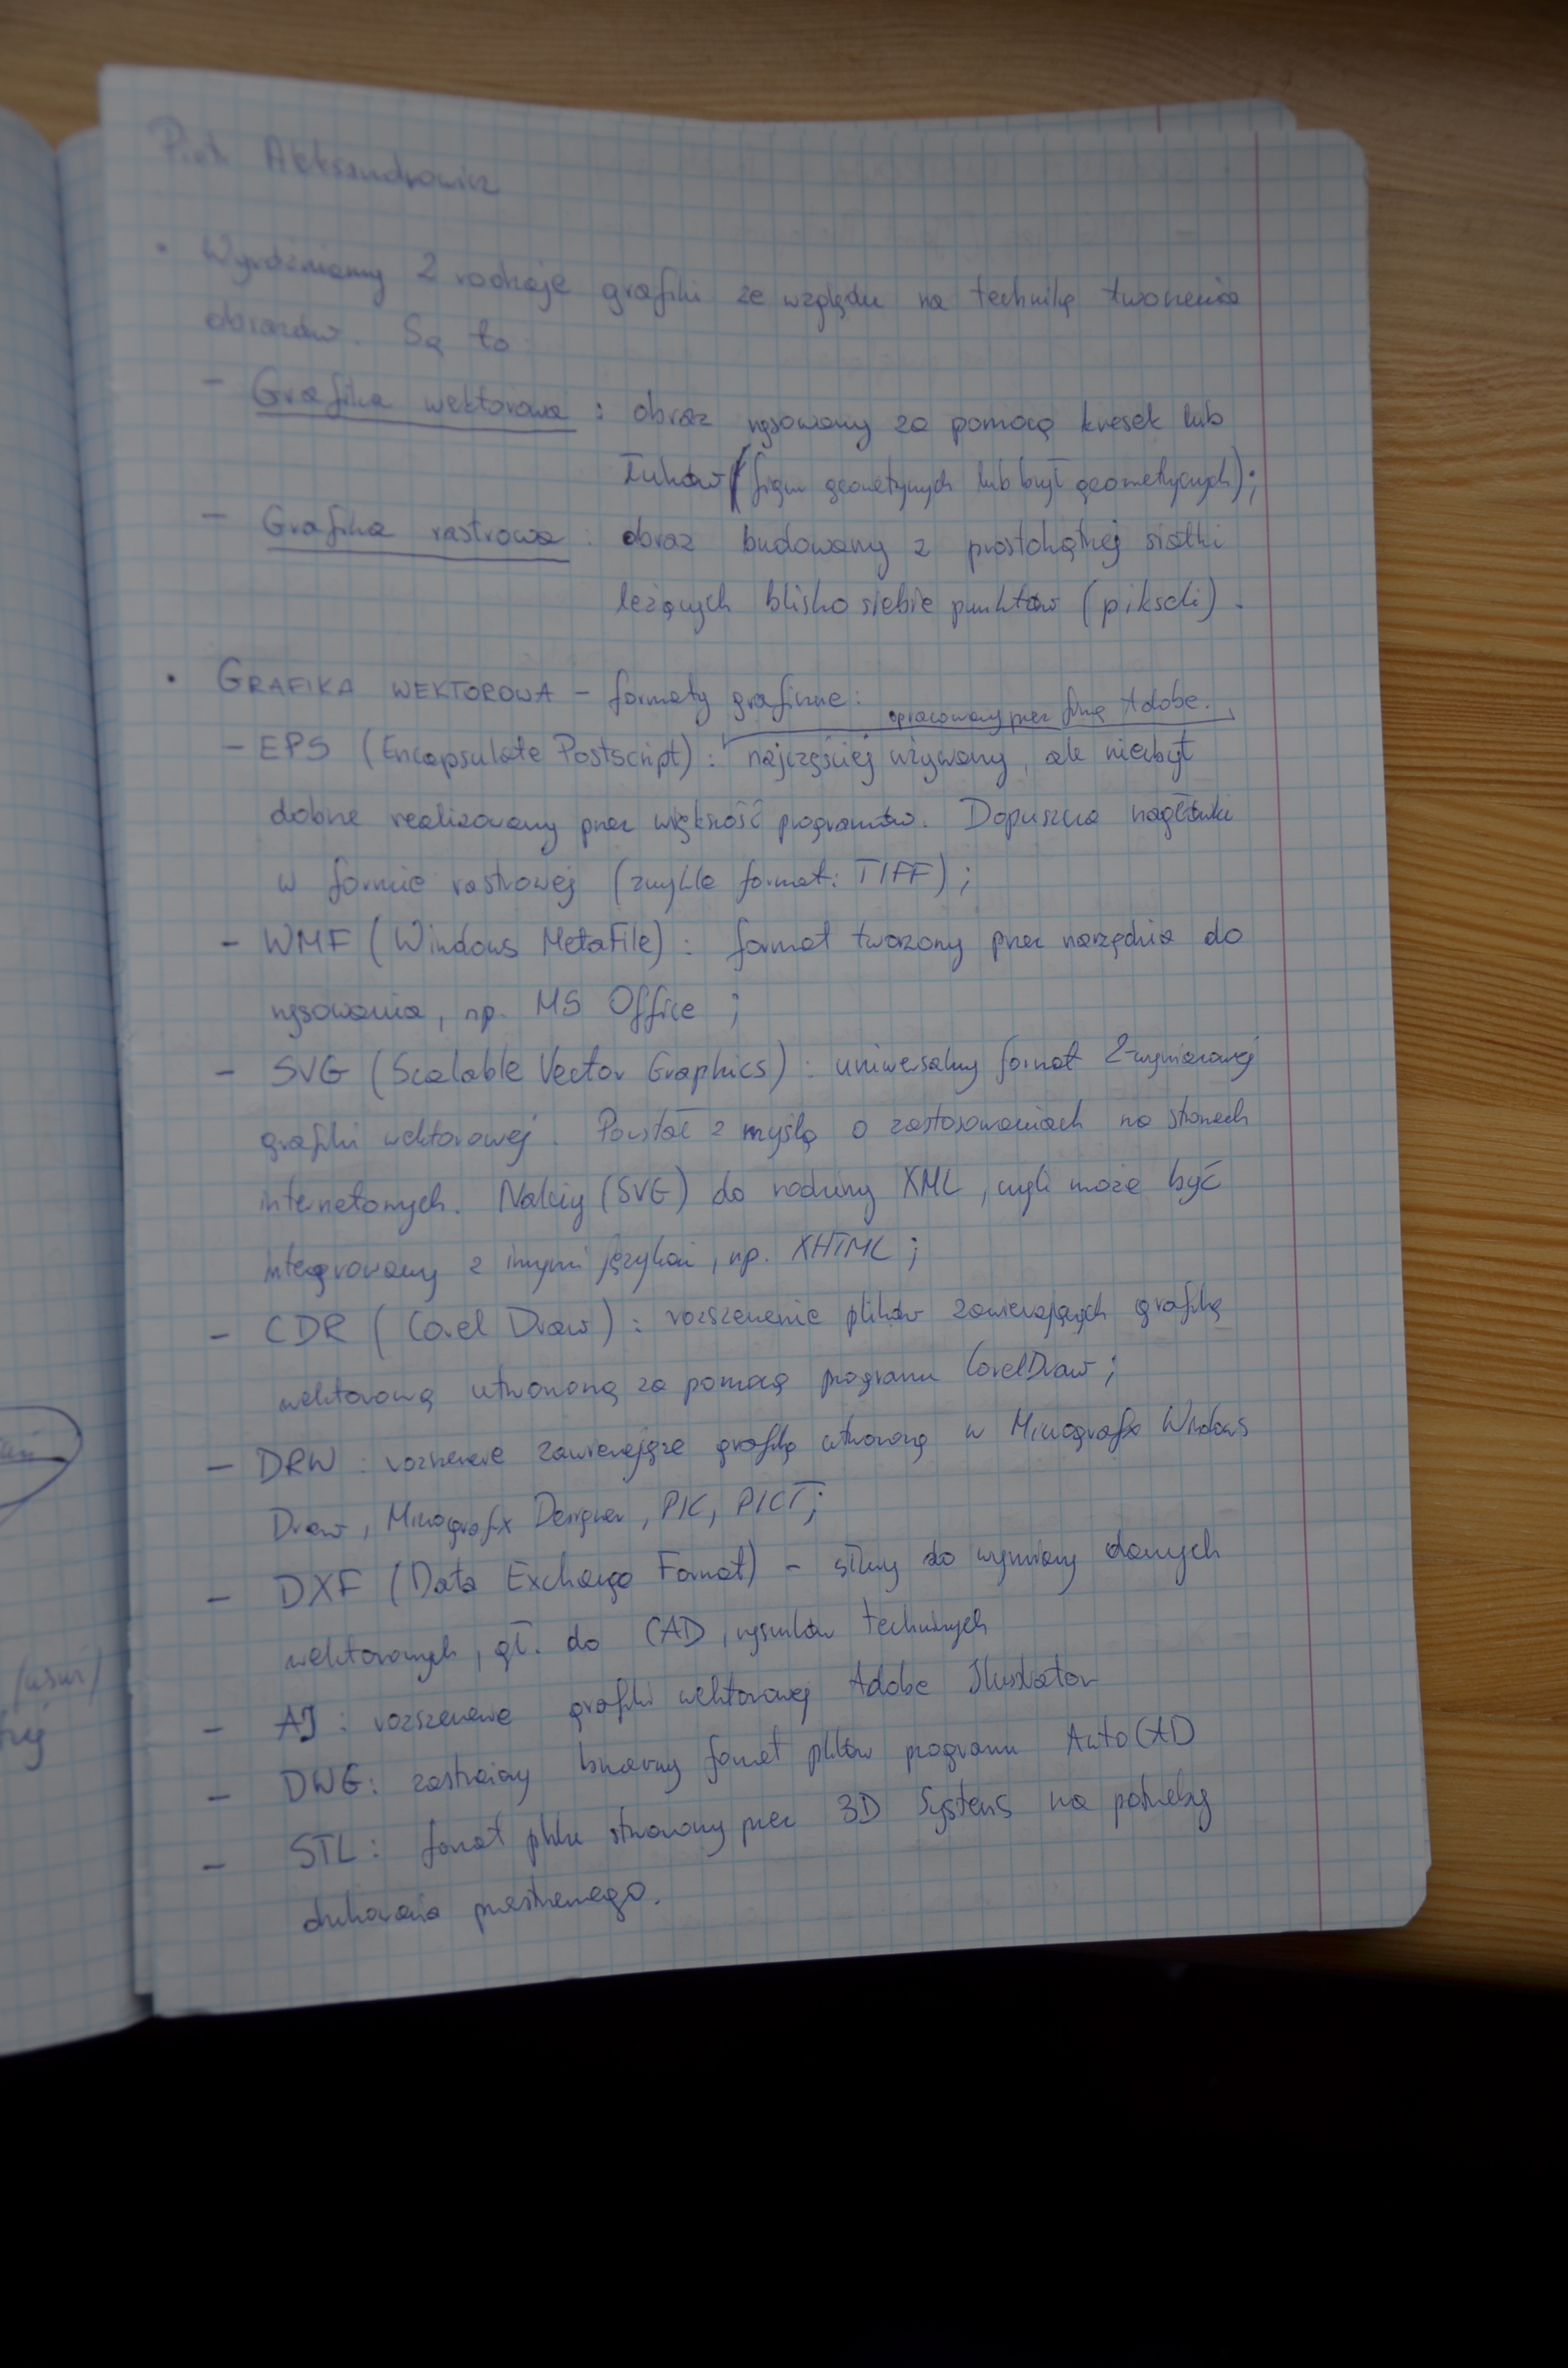 Piotr Aleksandrowicz
• Wyróżniamy 2 rodzaje grafiki ze względu na technikę tworzenia
obrazów. Są to
- Grafika wektorowa : obraz rysowany za pomocą kresek lub
łuków (figur geometrycznych lub brył geometrycznych);
- Grafika rastrowa : obraz budowany z prostokątnej siatki
leżących blisko siebie punktów (pikseli).
• GRAFIKA WEKTOROWA - formaty graficzne:
opracowany przez firmę Adobe.
- EPS (Encapsulate Postscript) : najczęściej używany, ale niezbyt
dobrze realizowany przez większość programów. Dopuszcza nagłówki
w formie rastrowej (zwykle format: TIFF) ;
- WMF (Windows MetaFile) : format tworzony przez narzędzia do
rysowania, np. MS Office ;
- SVG (Scalable Vector Graphics) : uniwersalny format 2-wymiarowej
grafiki wektorowej. Powstał z myślą o zastosowaniach na stronach
internetowych. Należy (SVG) do rodziny XML, czyli może być
integrowany z innymi językami, np. XHTML ;
- CDR ( Corel Draw ) : rozszerzenie plików zawierających grafikę
wektorową utworzoną za pomocą programu CorelDraw ;
- DRW : rozszerzenie zawierające grafikę utworzoną w Micrografx Windows
Draw, Micrografx Designer, PIC, PICT;
- DXF (Data Exchange Format) - służy do wymiany danych
wektorowych, gł. do CAD, rysunków technicznych
- AI : rozszerzenie grafiki wektorowej Adobe Ilustrator
- DWG : zastrzeżony binarny format plików programu AutoCAD
- STL : format pliku stworzony przez 3D Systems na potrzeby
drukowania przestrzennego.